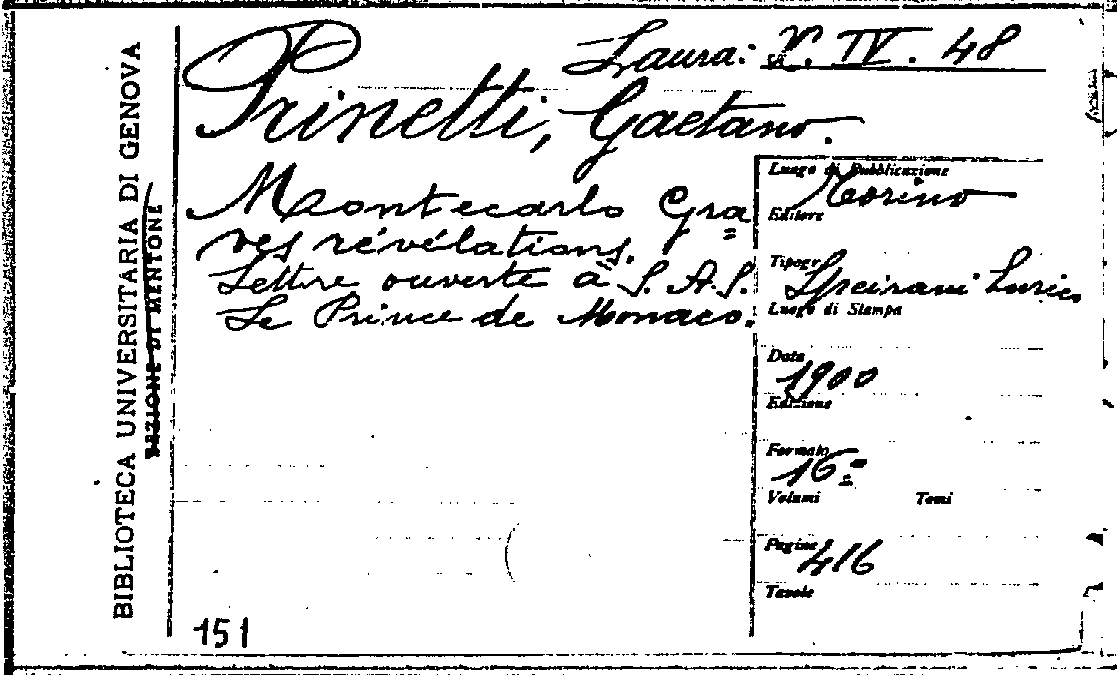 BIBLIOTECA UNIVERSITARIA DI GENOVA
SEZIONE DI MENTONE
Laura: V. IV. 48
Prinetti, Gaetano.
Montecarlo Gra=
ves révélations.
Lettre ouverte à S. A. S.
Le Prince de Monaco.
Luogo di Pubblicazione
Torino
Editore
Tipogr.
Speirani
Luogo di Stampa
Data
1900
Edizione
Formato
16º
Volumi Tomi
Pagine
416
Tavole
151